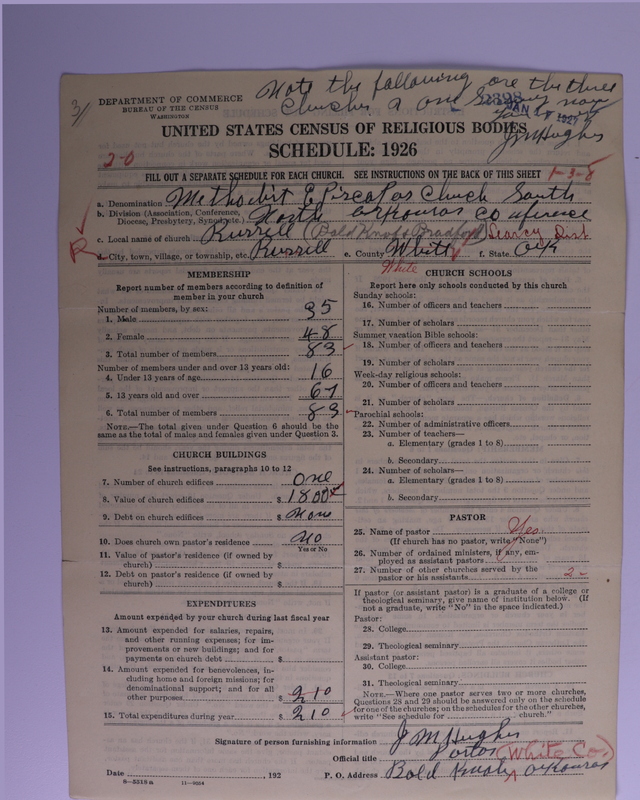 3/
DEPARTMENT OF COMMERCE
BUREAU OF THE CENSUS
WASHINGTON
Note the following are the three
Churches a one
J M Hughes
UNITED STATES CENSUS OF RELIGIOUS BODIES
SCHEDULE: 1926
2-0
FILL OUT A SEPARATE SCHEDULE FOR EACH CHURCH. SEE INSTRUCTIONS ON THE BACK OF THIS SHEET
1-3-8
a. Denomination Methodist Episcopas Church South
b. Division (Association, Conference, Diocese, Presbytery, Synod, etc.) North Arkansas Conference
c. Local name of church Russell (Bald Knob & Bradford) Searcy Dist
R
d. City, town, village, or township, etc. Russell e. County White f. State Ark
White
MEMBERSHIP
Report number of members according to definition of
member in your church
Number of members, by sex:
1. Male 35
2. Female 48
3. Total number of members 83
Number of members under and over 13 years old:
4. Under 13 years of age 16
5. 13 years old and over 67
6. Total number of members 83
NOTE.—The total given under Question 6 should be the
same as the total of males and females given under Question 3.
CHURCH BUILDINGS
See instructions, paragraphs 10 to 12
7. Number of church edifices one
8. Value of church edifices $ 1800
9. Debt on church edifices $ None
10. Does church own pastor's residence? No
Yes or No
11. Value of pastor's residence (if owned by
church) $
12. Debt on pastor's residence (if owned by
church) $
EXPENDITURES
Amount expended by your church during last fiscal year
13. Amount expended for salaries, repairs,
and other running expenses; for im-
provements or new buildings; and for
payments on church debt $
14. Amount expended for benevolences, in-
cluding home and foreign missions; for
denominational support; and for all
other purposes $ 210
15. Total expenditures during year $ 210
CHURCH SCHOOLS
Report here only schools conducted by this church
Sunday schools:
16. Number of officers and teachers
17. Number of scholars
Summer vacation Bible schools:
18. Number of officers and teachers
19. Number of scholars
Week-day religious schools:
20. Number of officers and teachers
21. Number of scholars
Parochial schools:
22. Number of administrative officers
23. Number of teachers—
a. Elementary (grades 1 to 8)
b. Secondary
24. Number of scholars—
a. Elementary (grades 1 to 8)
b. Secondary
PASTOR
25. Name of pastor Yes
(If church has no pastor, write "None")
26. Number of ordained ministers, if any, em-
ployed as assistant pastors
27. Number of other churches served by the
pastor or his assistants 2
If pastor (or assistant pastor) is a graduate of a college or
theological seminary, give name of institution below. (If
not a graduate, write "No" in the space indicated.)
Pastor:
28. College
29. Theological seminary
Assistant pastor:
30. College
31. Theological seminary
NOTE.—Where one pastor serves two or more churches,
Questions 28 and 29 should be answered only on the schedule
for one of the churches; on the schedules for the other churches,
write "See schedule for church."
Signature of person furnishing information J M Hughes
Official title Pastor (White Co.)
Date , 192 P. O. Address Bald Knob, Arkansas
8—5518a 11—9054